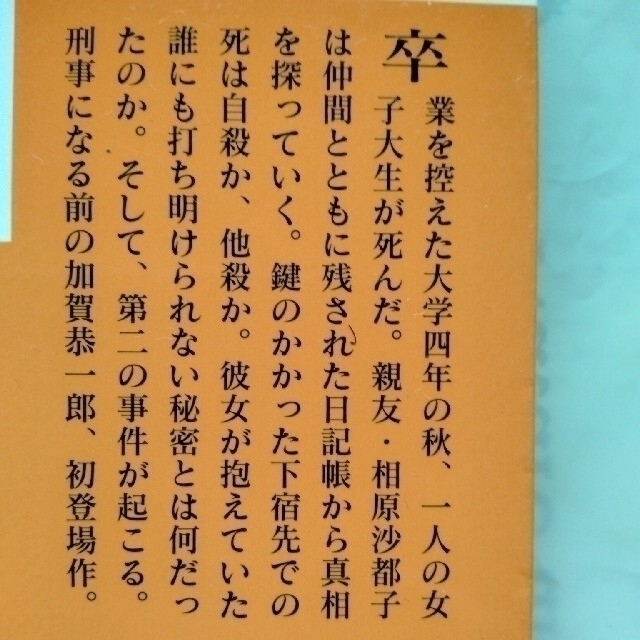 卒業を控えた大学四年の秋、一人の女
子大生が死んだ。親友・相原沙都子
は仲間とともに残された日記帳から真相
を探っていく。鍵のかかった下宿先での
死は自殺か、他殺か。彼女が抱えていた
誰にも打ち明けられない秘密とは何だっ
たのか。そして、第二の事件が起こる。
刑事になる前の加賀恭一郎、初登場作。